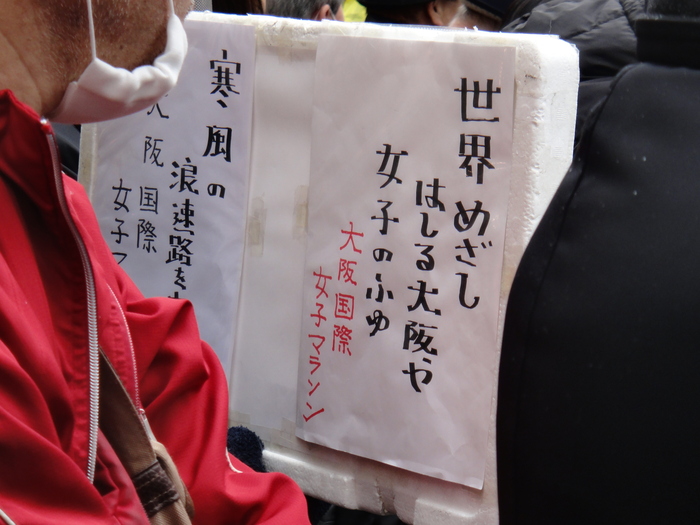 世界めざし
はしる大阪や
女子のふゆ
大阪国際
女子マラソン
寒風の
浪速路を
大阪国際
女子マ